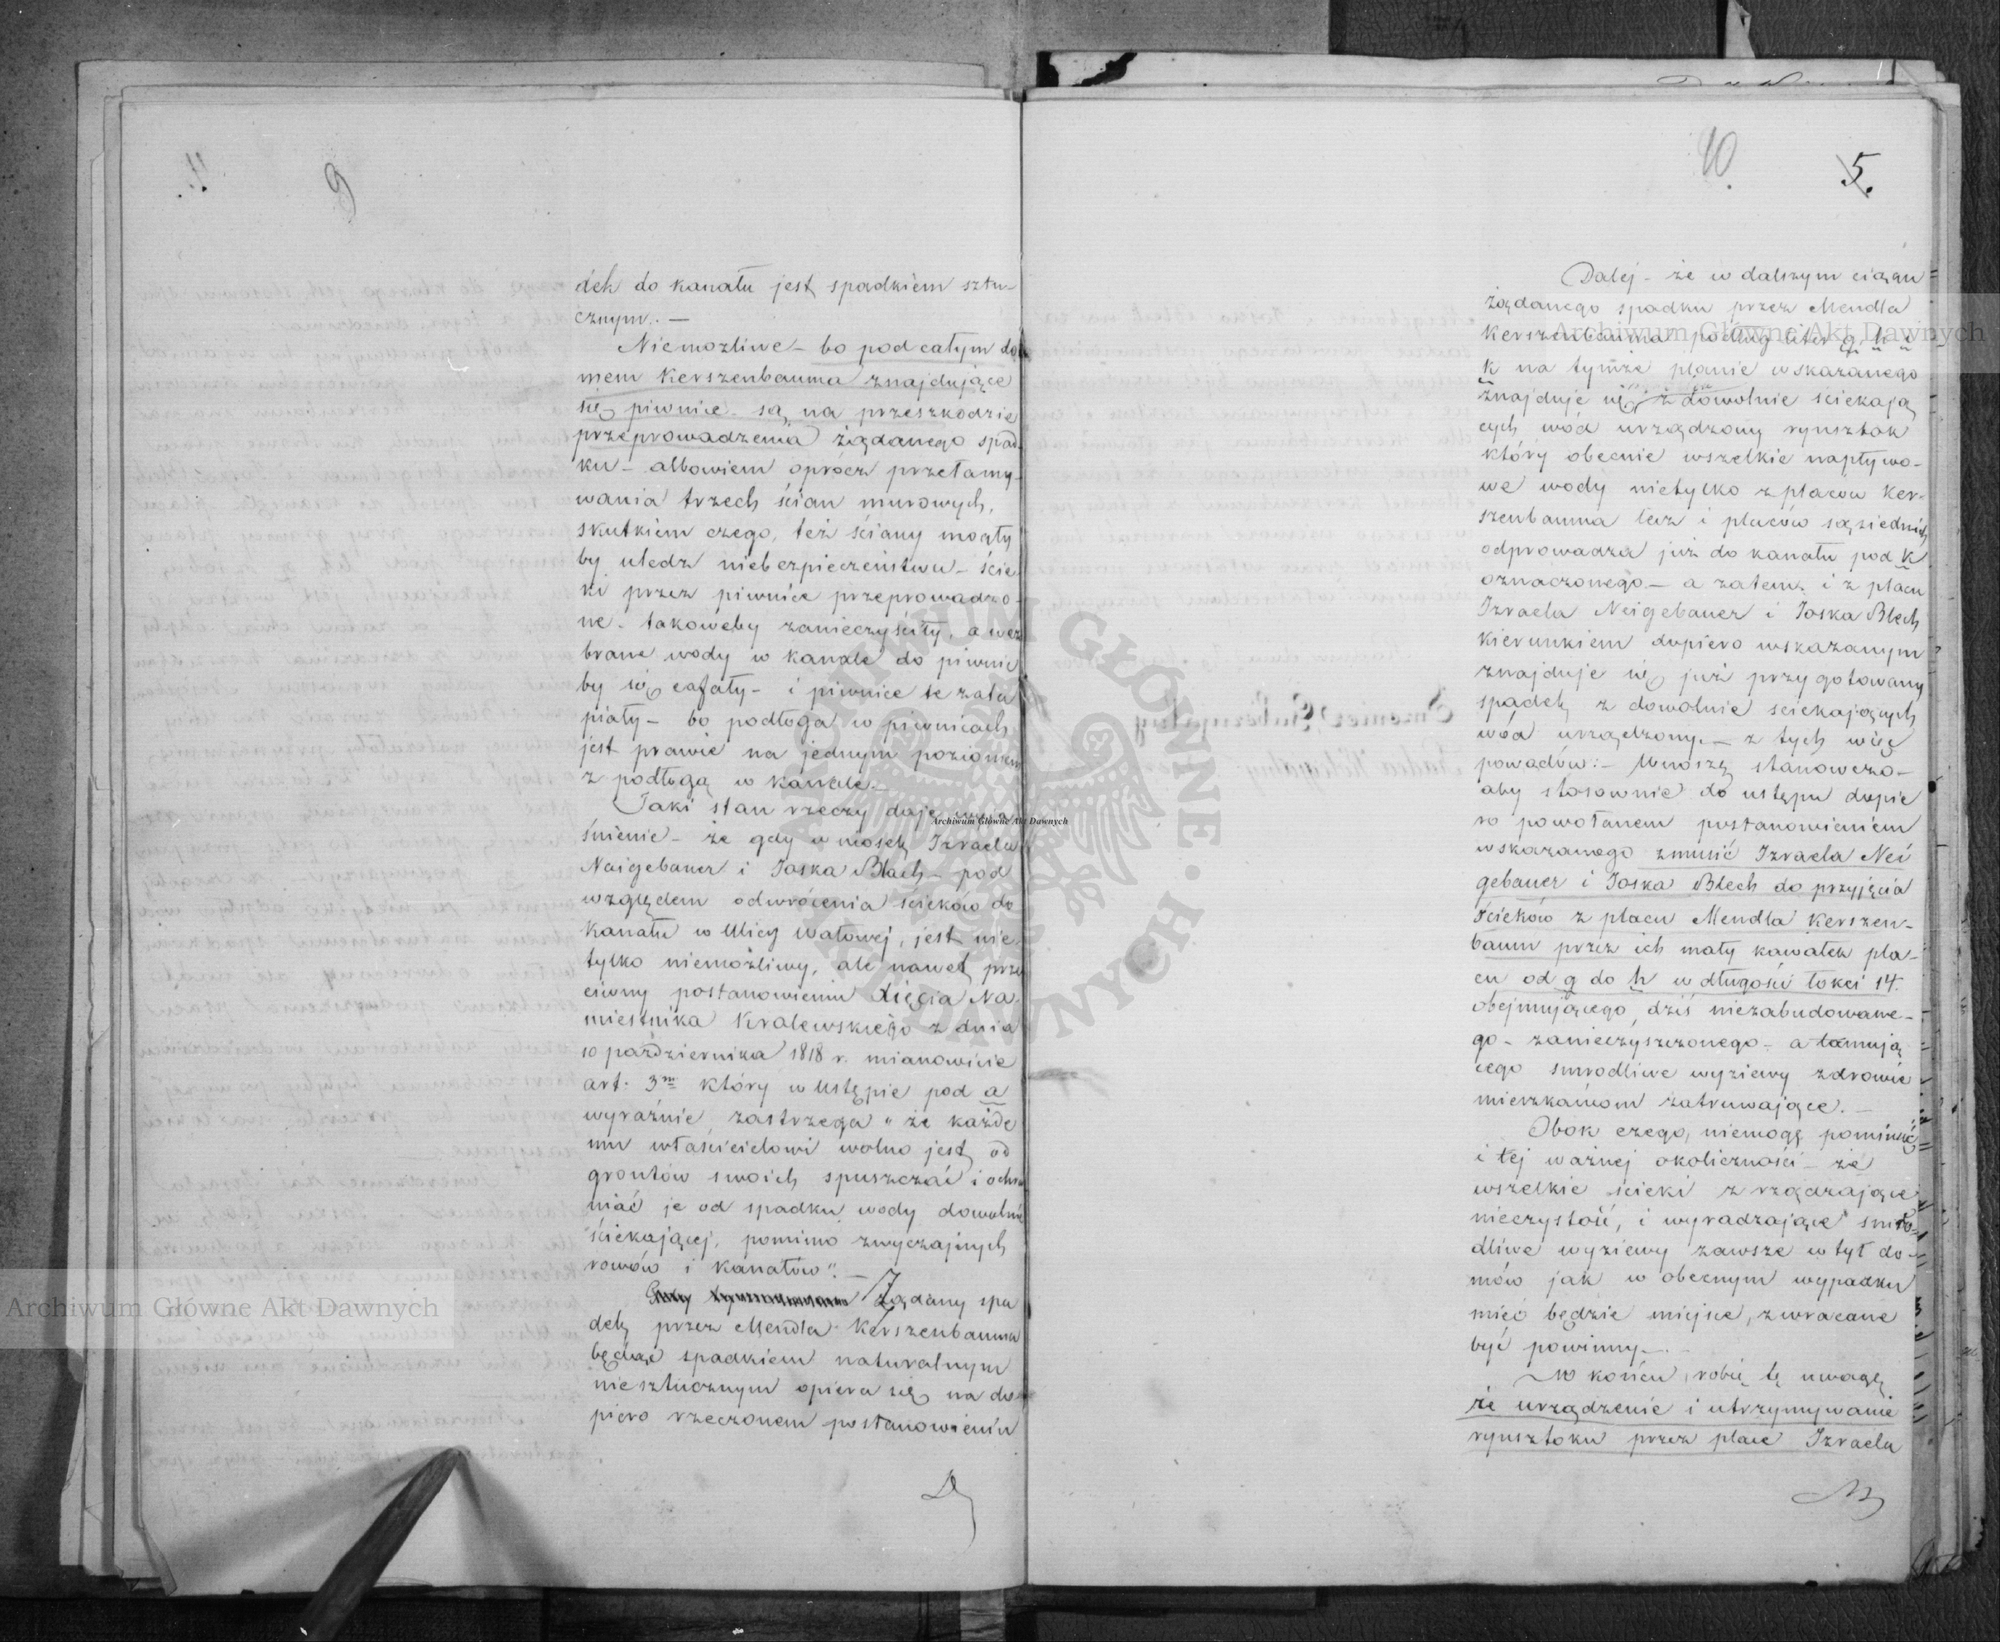 9
dek do kanału jest spadkiem sztu-
cznym. —
Niemożliwe – bo pod całym do
mem Kerszenbauma znajdujące
się piwnice – są na przeszkodzie
przeprowadzenia żądanego spad-
ku – albowiem oprócz przełamy-
wania trzech ścian murowych,
skutkiem czego, też ściany mogły
by uledz niebezpieczeństwu – ście-
ki przez piwnice przeprowadzo-
ne – takoweby zanieczyściły, a wez
brane wody w kanale do piwnic
by się cofały – i piwnice te zata
piały – bo podłoga w piwnicach
jest prawie na jednym poziomie
z podłogą w kanale. –
Taki stan rzeczy daje wyja
śnienie – że gdy wniosek Izraela
Naigebauer i Joska Blach – pod
względem odwrócenia ścieków do
Kanału w Ulicy Wałowej, jest nie-
tylko niemożliwy, ale nawet prze
ciwny postanowieniu Xięcia Na-
miestnika Kralewskiego z dnia
10 października 1818 r. mianowicie
art: 3m który w Ustępie pod a
wyraźnie zastrzega „ że każde
mu właścicielowi wolno jest od
grontów swoich spuszczać i ochra
niać je od spadku wody dowolnie
ściekającej, pomimo zwyczajnych
rowów i kanałów". –
Żądany spa
dek przez Mendla Kerszenbauma
będąc spadkiem naturalnym
niesztucznym opiera się na do-
piero rzeczonem postanowieniu
10.
5.
Dalej – że w dalszym ciągu
żądanego spadku przez Mendla
Kerszenbauma podług liter g, h, i
k na tymże planie wskazanego
znajduje się z dowolnie ściekają
cych wód urządzony rynsztok
który obecnie wszelkie napływo-
we wody nietylko z placów Ker-
szenbauma lecz i placów sąsiednich
odprowadza już do kanału pod k
oznaczonego – a zatem i z placu
Izraela Neigebauer i Joska Blech
kierunkiem dopiero wskazanym
znajduje się już przygotowany
spadek z dowolnie sciekających
wód urządzony. – z tych więc
powodów: – Wnoszę stanowczo –
aby stosownie do ustępu dopie
ro powołanem postanowieniem
wskazanego zmusić Izraela Nei
gebauer i Joska Blech do przyjęcia
ścieków z placu Mendla Kerszen-
baum przez ich mały kawałek pla-
cu od g do h w długości łokci 14.
obejmującego, dziś niezabudowane-
go – zanieczyszczonego – a tamują
cego smrodliwe wyziewy zdrowie
mieszkańcom zatruwające. –
Obok czego, niemogę pominąć
i tej ważnej okoliczności – że
wszelkie ścieki zrządzające
nieczystość, i wyradzające smro-
dliwe wyziewy zawsze w tył do-
mów jak w obecnym wypadku
mieć będzie miejsce, zwracane
być powinny. –
W końcu, robię tę uwagę
że urządzenie i utrzymywanie
rynsztoku przez place Izraela
Archiwum Główne Akt Dawnych
Archiwum Główne Akt Dawnych
Archiwum Główne Akt Dawnych
ARCHIWUM GŁÓWNE · AKT DAWNYCH ·